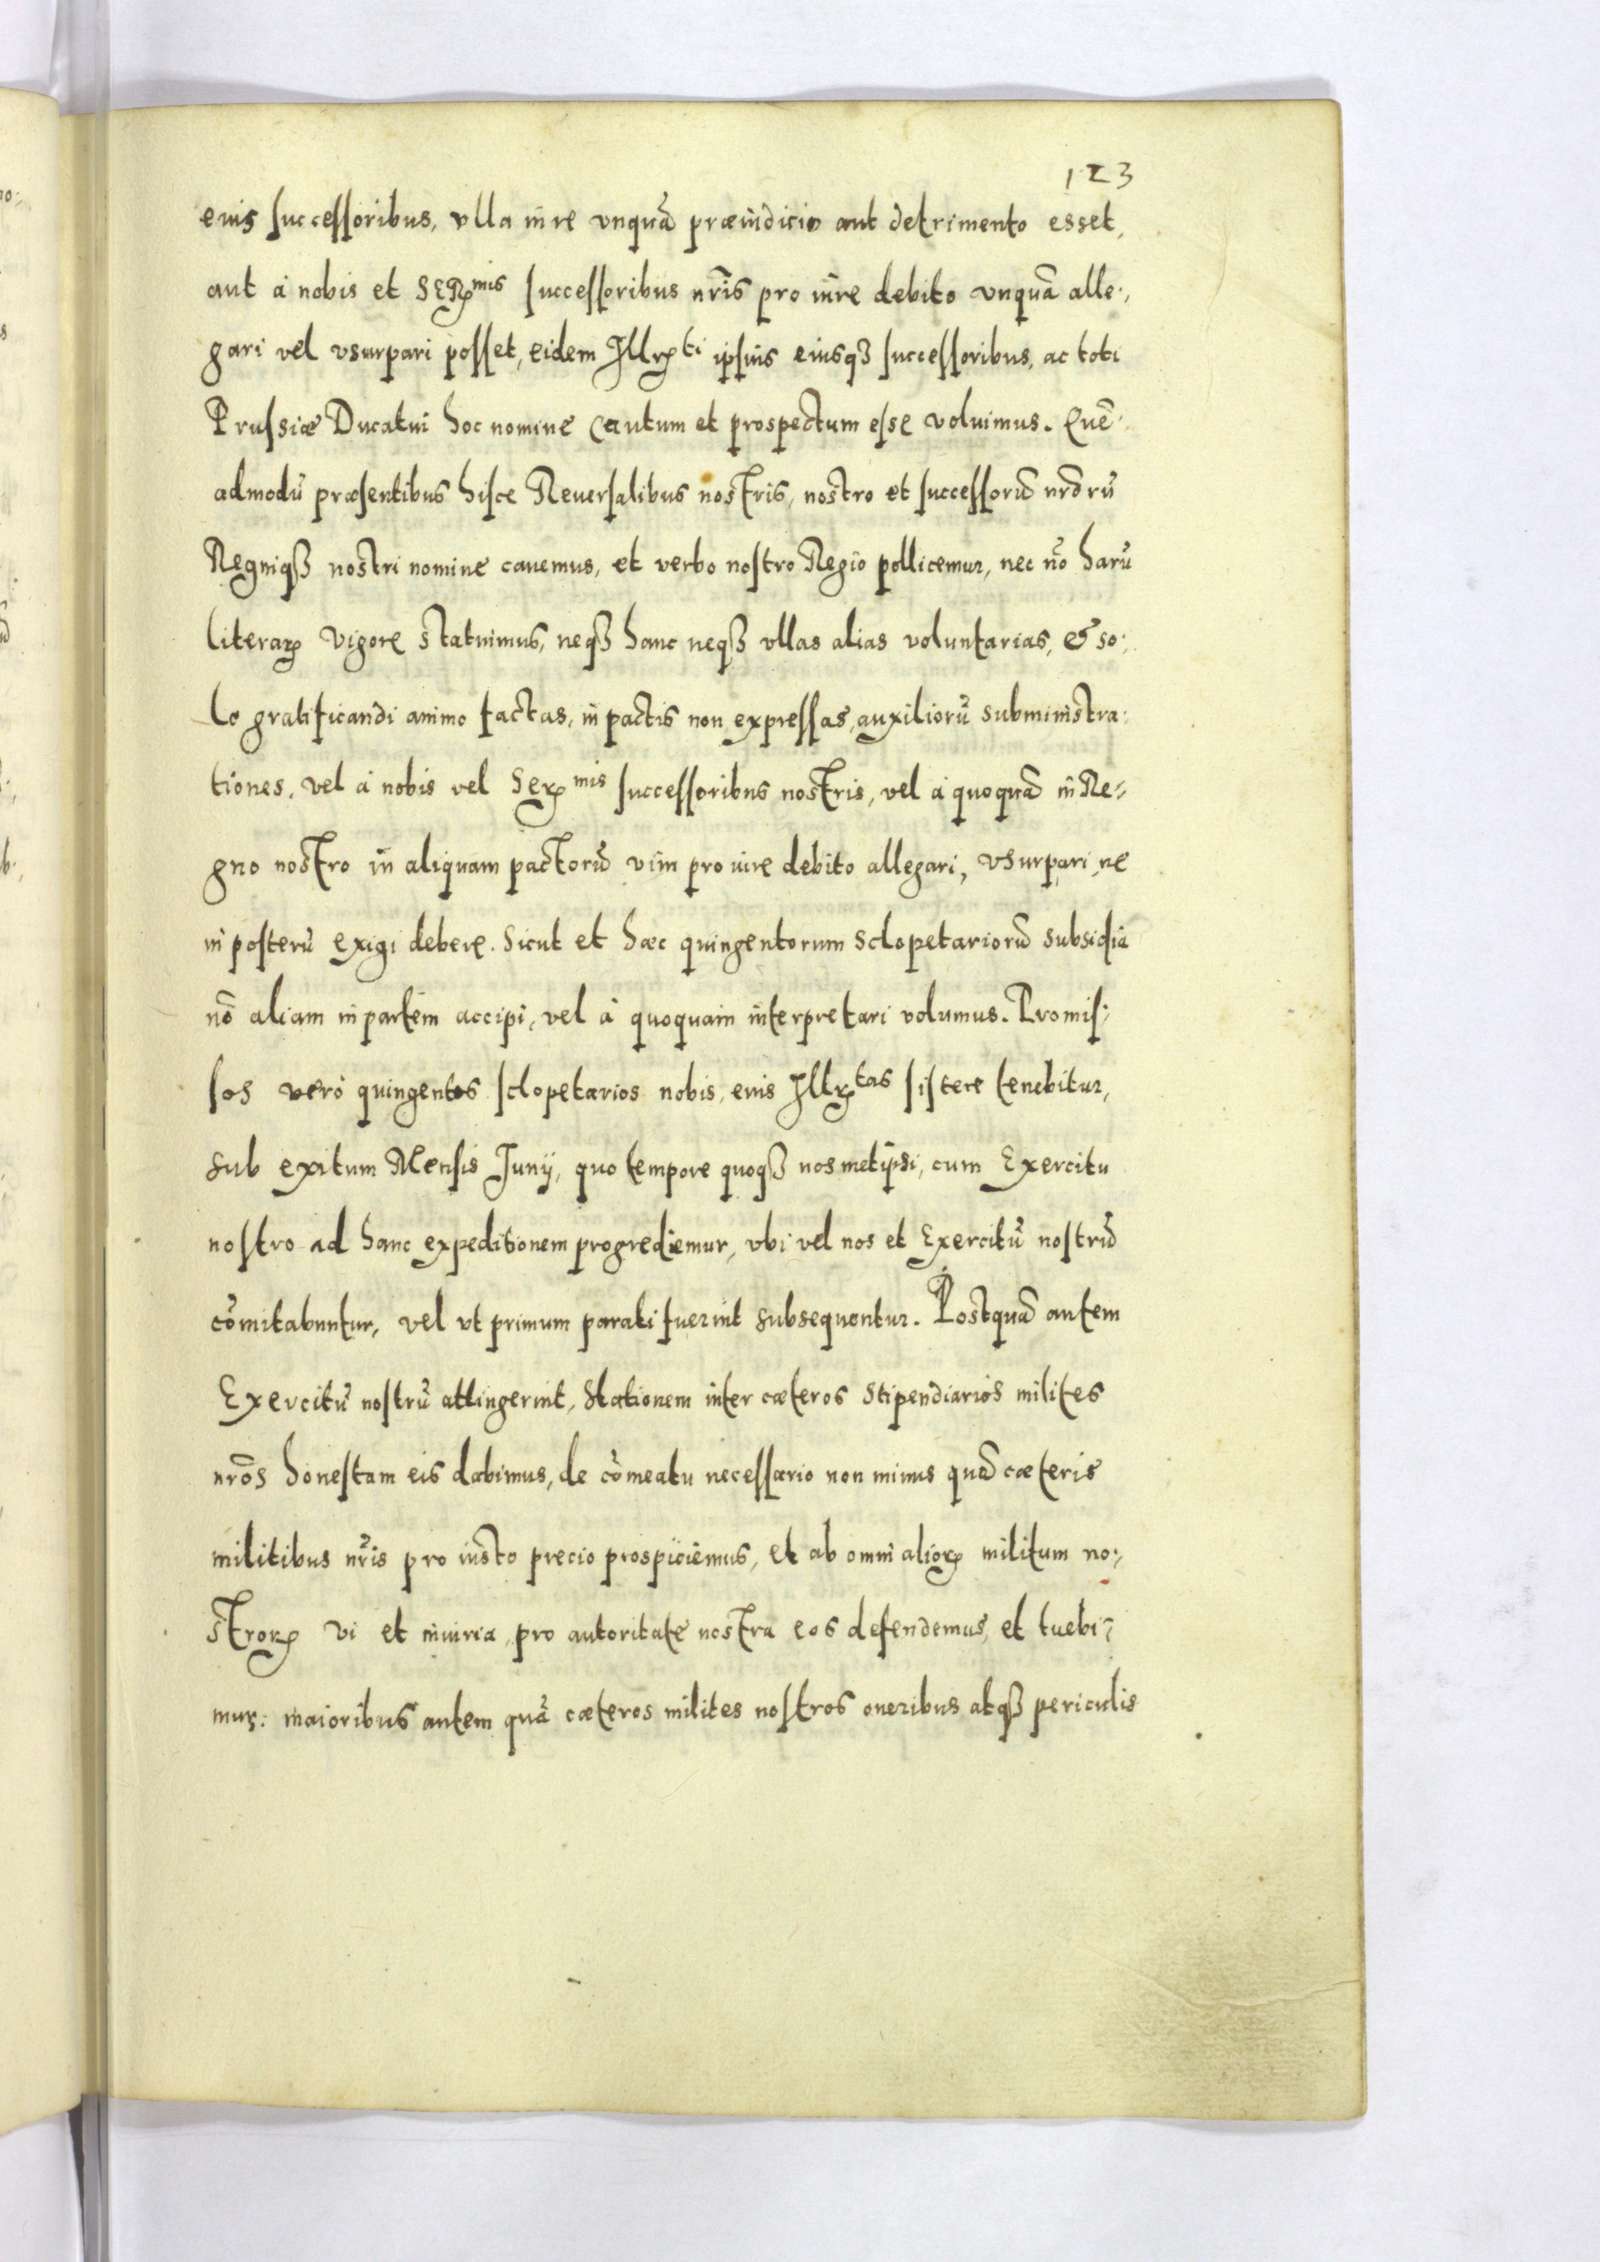 123
eius successoribus, vlla in re vnquā præiudicio aut detrimento esset,
aut à nobis et Serꝝmis successoribus nr̄is pro iure debito vnquā alle-
gari vel vsurpari posset, eidem Illrꝝti ipsius eiusqꝫ successoribus, ac toti
Prussiæ Ducatui hoc nomine cautum et prospectum esse voluimus. Quē-
admodū præsentibus hisce Reuersalibus nostris, nostro et successorū nr̄orū
Regniqꝫ nostri nomine cauemus, et verbo nostro Regio pollicemur, nec nō harū
literaꝝ vigore statuimus, neqꝫ hanc neqꝫ vllas alias voluntarias, & so-
lo gratificandi animo factas, in pactis non expressas, auxiliorū subministra-
tiones, vel à nobis vel Serꝝmis successoribus nostris, vel à quoquā in Re-
gno nostro in aliquam pactorū vim pro iure debito allegari, vsurpari, ne
in posterū exigi debere. Sicut et hæc quingentorum sclopetariorū subsidia
nō aliam in partem accipi, vel à quoquam interpretari volumus. Promis-
sos verò quingentos sclopetarios nobis, eius Illrꝝtas sistere tenebitur,
sub exitum Mensis Iunij, quo tempore quoqꝫ nosmetipsi, cum Exercitu
nostro ad hanc expeditionem progrediemur, vbi vel nos et Exercitū nostrū
cōmitabuntur, vel vt primum parati fuerint subsequentur. Postquā autem
Exercitū nostrū attingerint, stationem inter cæteros stipendiarios milites
nrōs honestam eis dabimus, de cōmeatu necessario non minus quā cæteris
militibus nr̄is pro iusto precio prospiciemus, et ab omni alioꝝ militum no-
stroꝝ vi et iniuria, pro autoritate nostra eos defendemus, et tuebi-
mur: maioribus autem quā cæteros milites nostros oneribus atqꝫ periculis